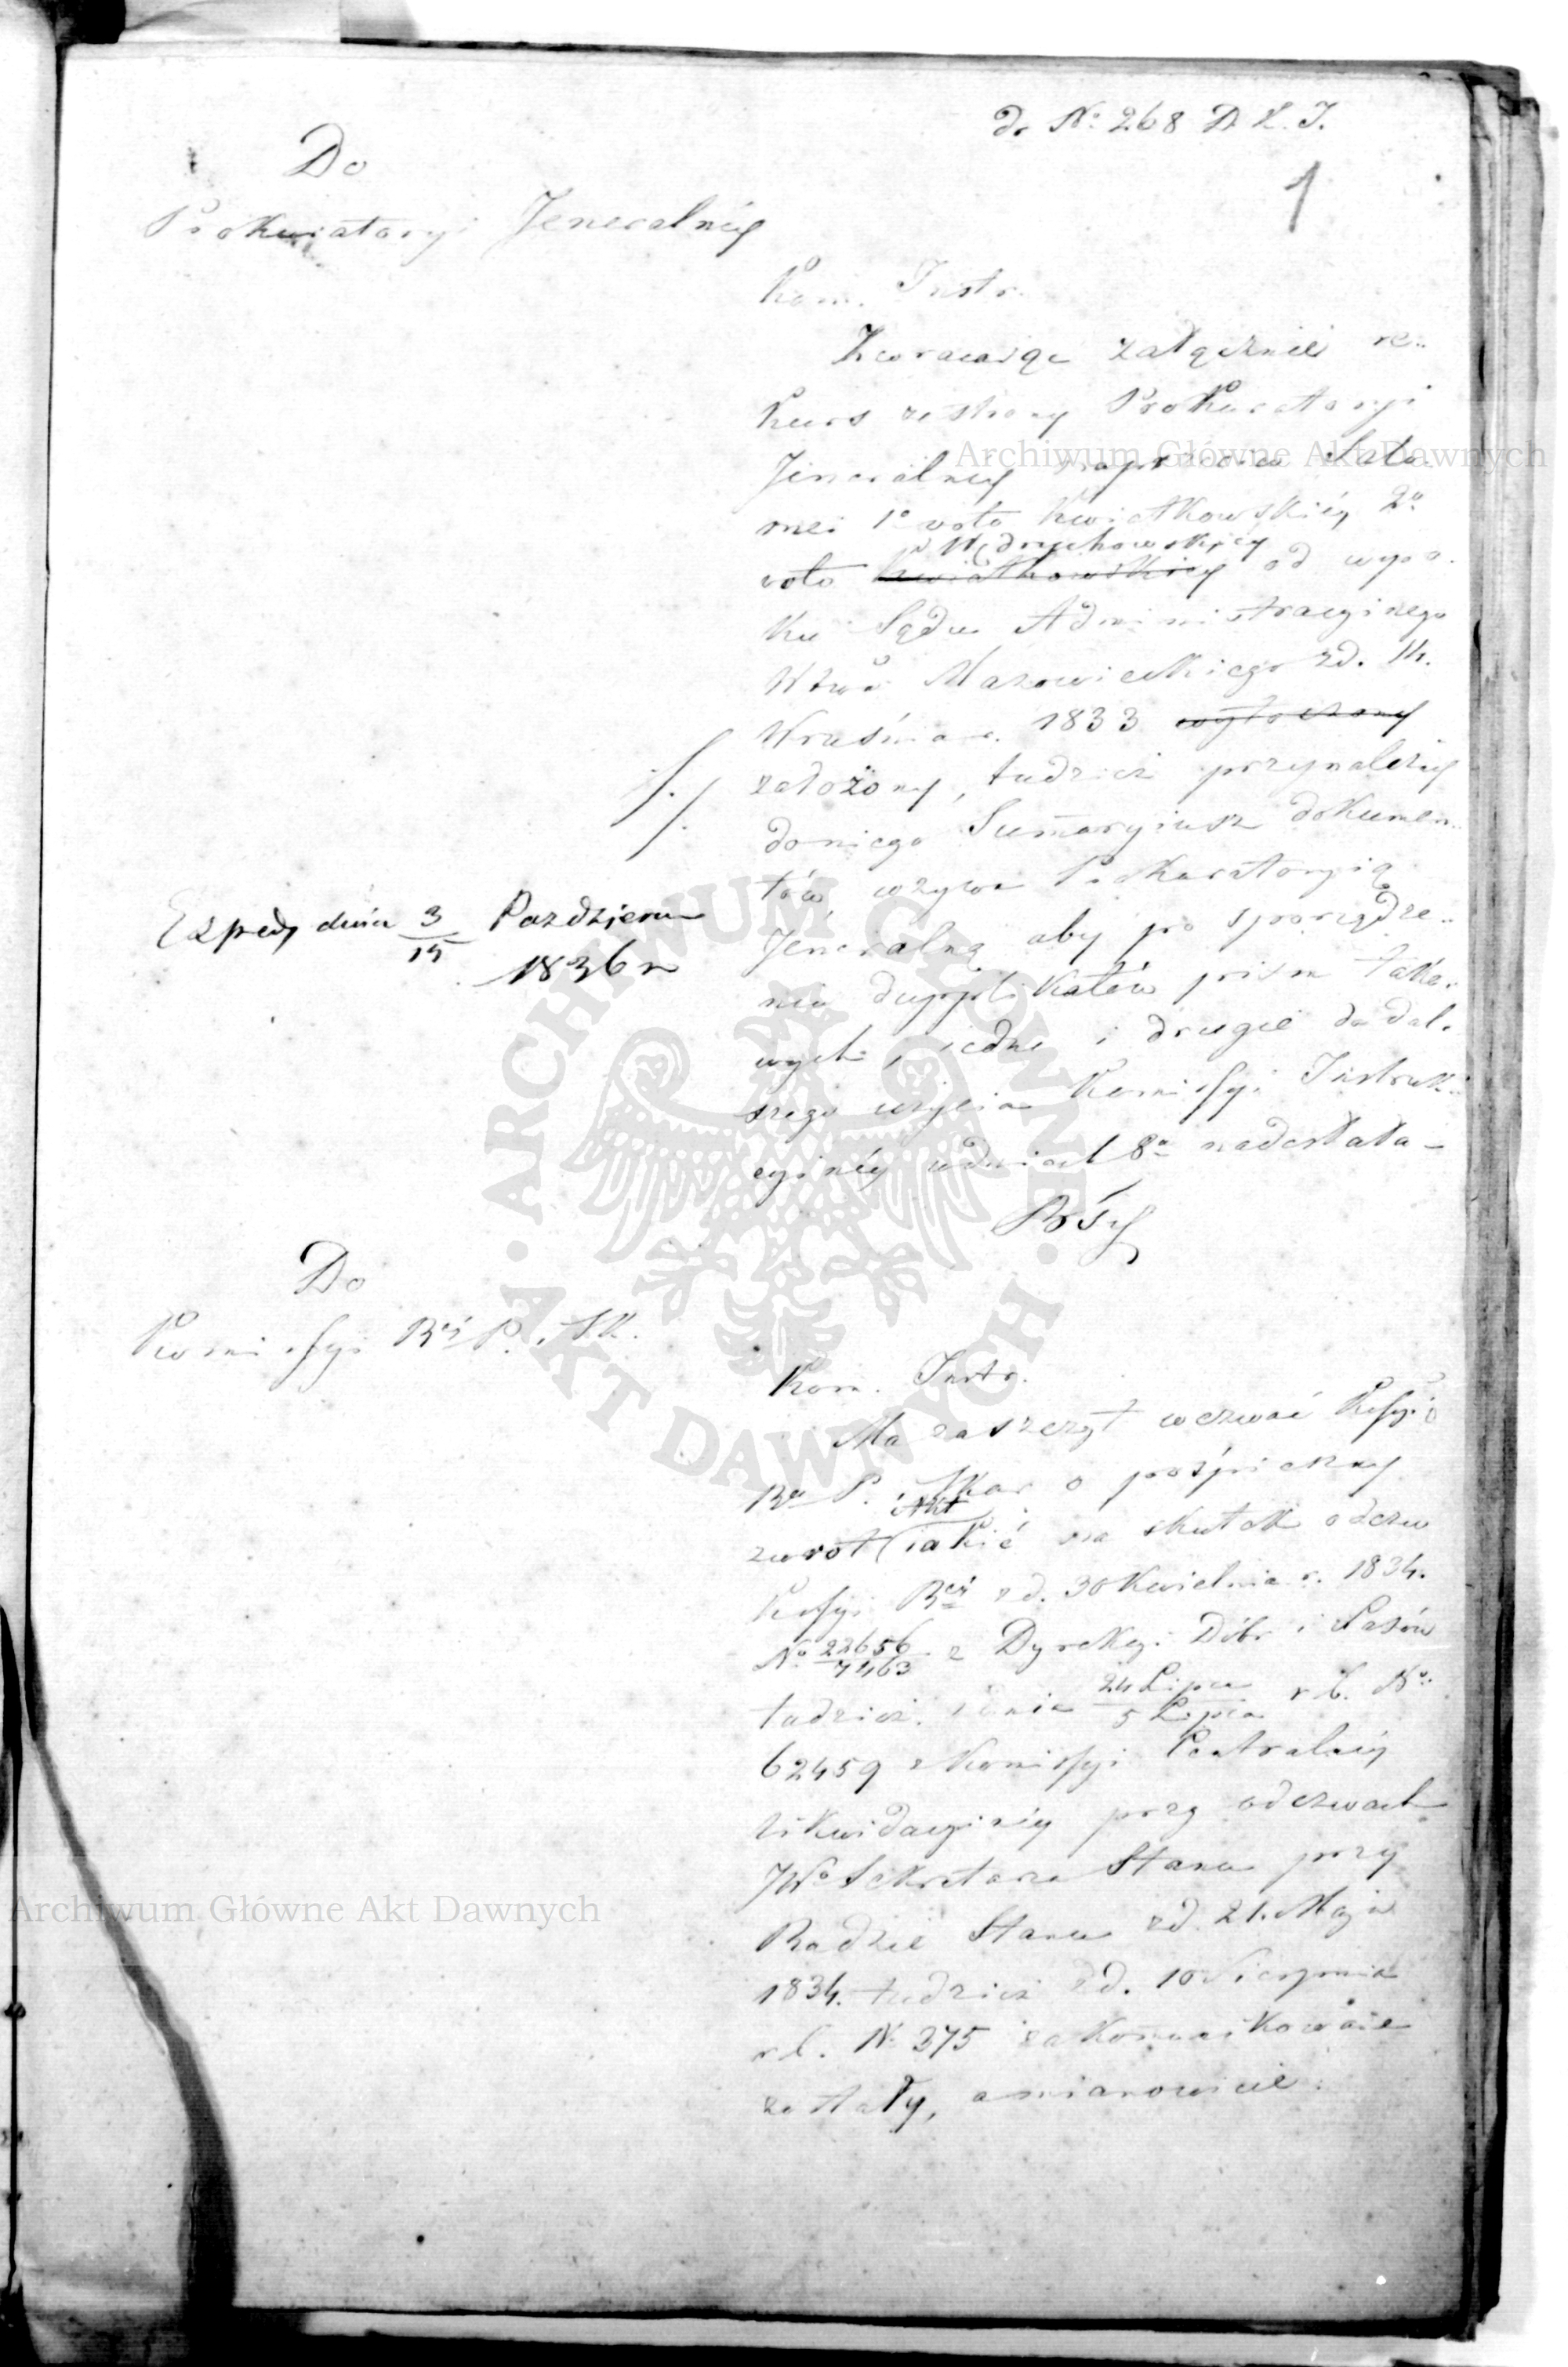 do No 268 D K. I.
1
Do
Prokuratoryi Jeneralney
Kom. Instr.
Zwracaiąc załącznie re-
kurs ze strony Prokuratoryi
Jeneralney naprzeciw Salo-
mei 1o voto Kwiatkowskiéy 2o
Wędrychowskiéy
voto Kwiatkowskiey od wyro-
ku Sądu Administracyinego
Wtwa Mazowieckiego z d. 14.
Września r. 1833 wytoczony
założony, tudzież przynależny
do niego Summaryusz dokumen-
tów, wzywa Prokuratoryią
Jeneralną aby po sporządze-
niu dupplikatów pism tako-
wych, iedne i drugie do dal-
szego użycia Kommissyi Instruk-
cyinéy w dniach 8u nadesłała -
Exped. dnia 3/15 Pazdziern
1836 r
Do
Kommissyi Rei P. i Sk.
Kom. Instr.
Ma zaszczyt wezwać Kssyią
Rą P. i Skar o pośpieszny
Akt
zwrot iakie na skutek odezw
Kssyi Rei z d. 30 Kwietnia r. 1834.
No 22656/7463 z Dyrekcyi Dóbr i Lasów
tudzież z dnia 24 /5 Lipca r. b. No
62459 z Kommissyi Centralnéy
Likwidacyinéy przy odezwach
JWo Sekretarza Stanu przy
Radzie Stanu z d. 21. Maja
1834. tudzież z d. 10 Sierpnia
r. b. N 375 zakommunikowane
zostały, a mianowicie:
Archiwum Główne Akt Dawnych
Archiwum Główne Akt Dawnych
ARCHIWUM GŁÓWNE · AKT DAWNYCH ·